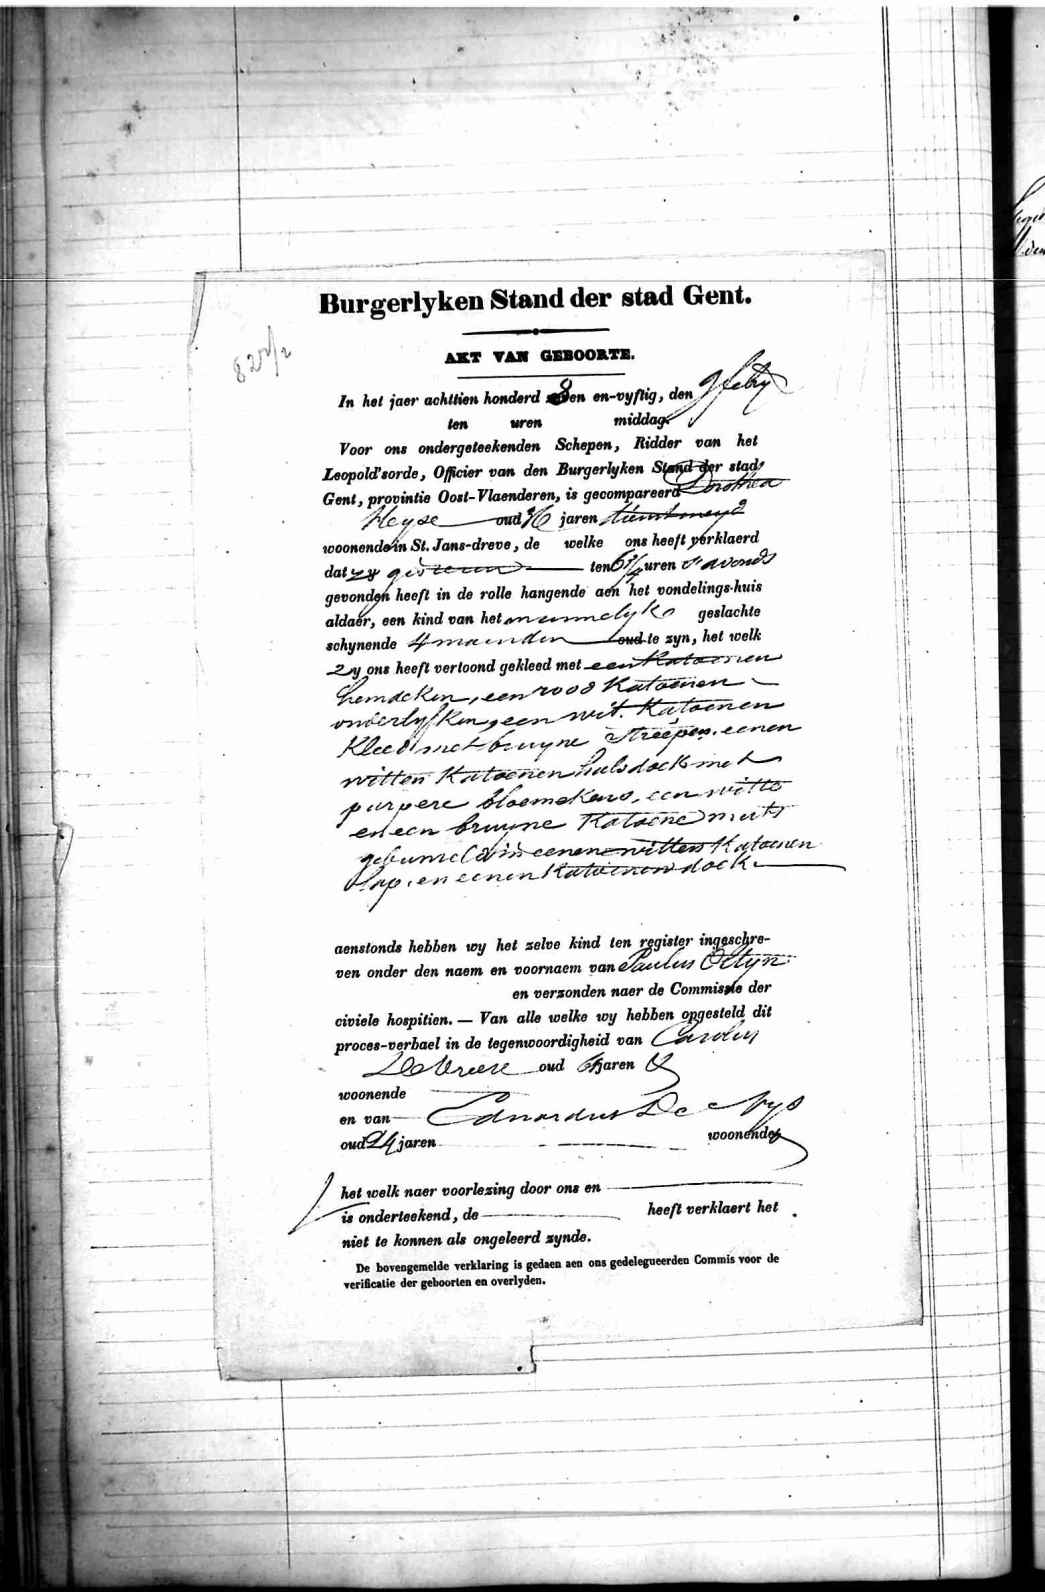 Burgerlyken Stand der stad Gent.
AKT VAN GEBOORTE.
In het jaer achttien honderd 8 en en-vyftig, den 9 febry
ten uren middag.
Voor ons ondergeteekenden Schepen, Ridder van het
Leopold'sorde, Officier van den Burgerlyken Stand der stad
Gent, provintie Oost-Vlaenderen, is gecompareerd Dorothea
Heyse oud jaren dienstmeyd
woonende in St. Jans-dreve, de welke ons heeft verklaerd
dat zy gisteren ten uren s'avonds
gevonden heeft in de rolle hangende aen het vondelings-huis
aldaer, een kind van het mannelyke geslachte
schynende 4 maenden oud te zyn, het welk
zy ons heeft vertoond gekleed met een Katoenen
hemdeken, een roos Katoenen
onderlyfken, een wit Katoenen
Kleed met bruyne streepen, eenen
witten Katoenen halsdoek met
purpere bloemekens, een witte
en een bruyne Katoene muts
gebunseld in eenen witten Katoenen
lap, en eenen Katoenen doek.
aenstonds hebben wy het zelve kind ten register ingeschre-
ven onder den naem en voornaem van Paulus
en verzonden naer de Commissie der
civiele hospitien. — Van alle welke wy hebben opgesteld dit
proces-verbael in de tegenwoordigheid van Carolus
DeVriese oud jaren
woonende
en van Eduardus De Nys
oud 24 jaren woonende
het welk naer voorlezing door ons en
is onderteekend, de heeft verklaert het
niet te konnen als ongeleerd zynde.
De bovengemelde verklaring is gedaen aen ons gedelegueerden Commis voor de
verificatie der geboorten en overlyden.